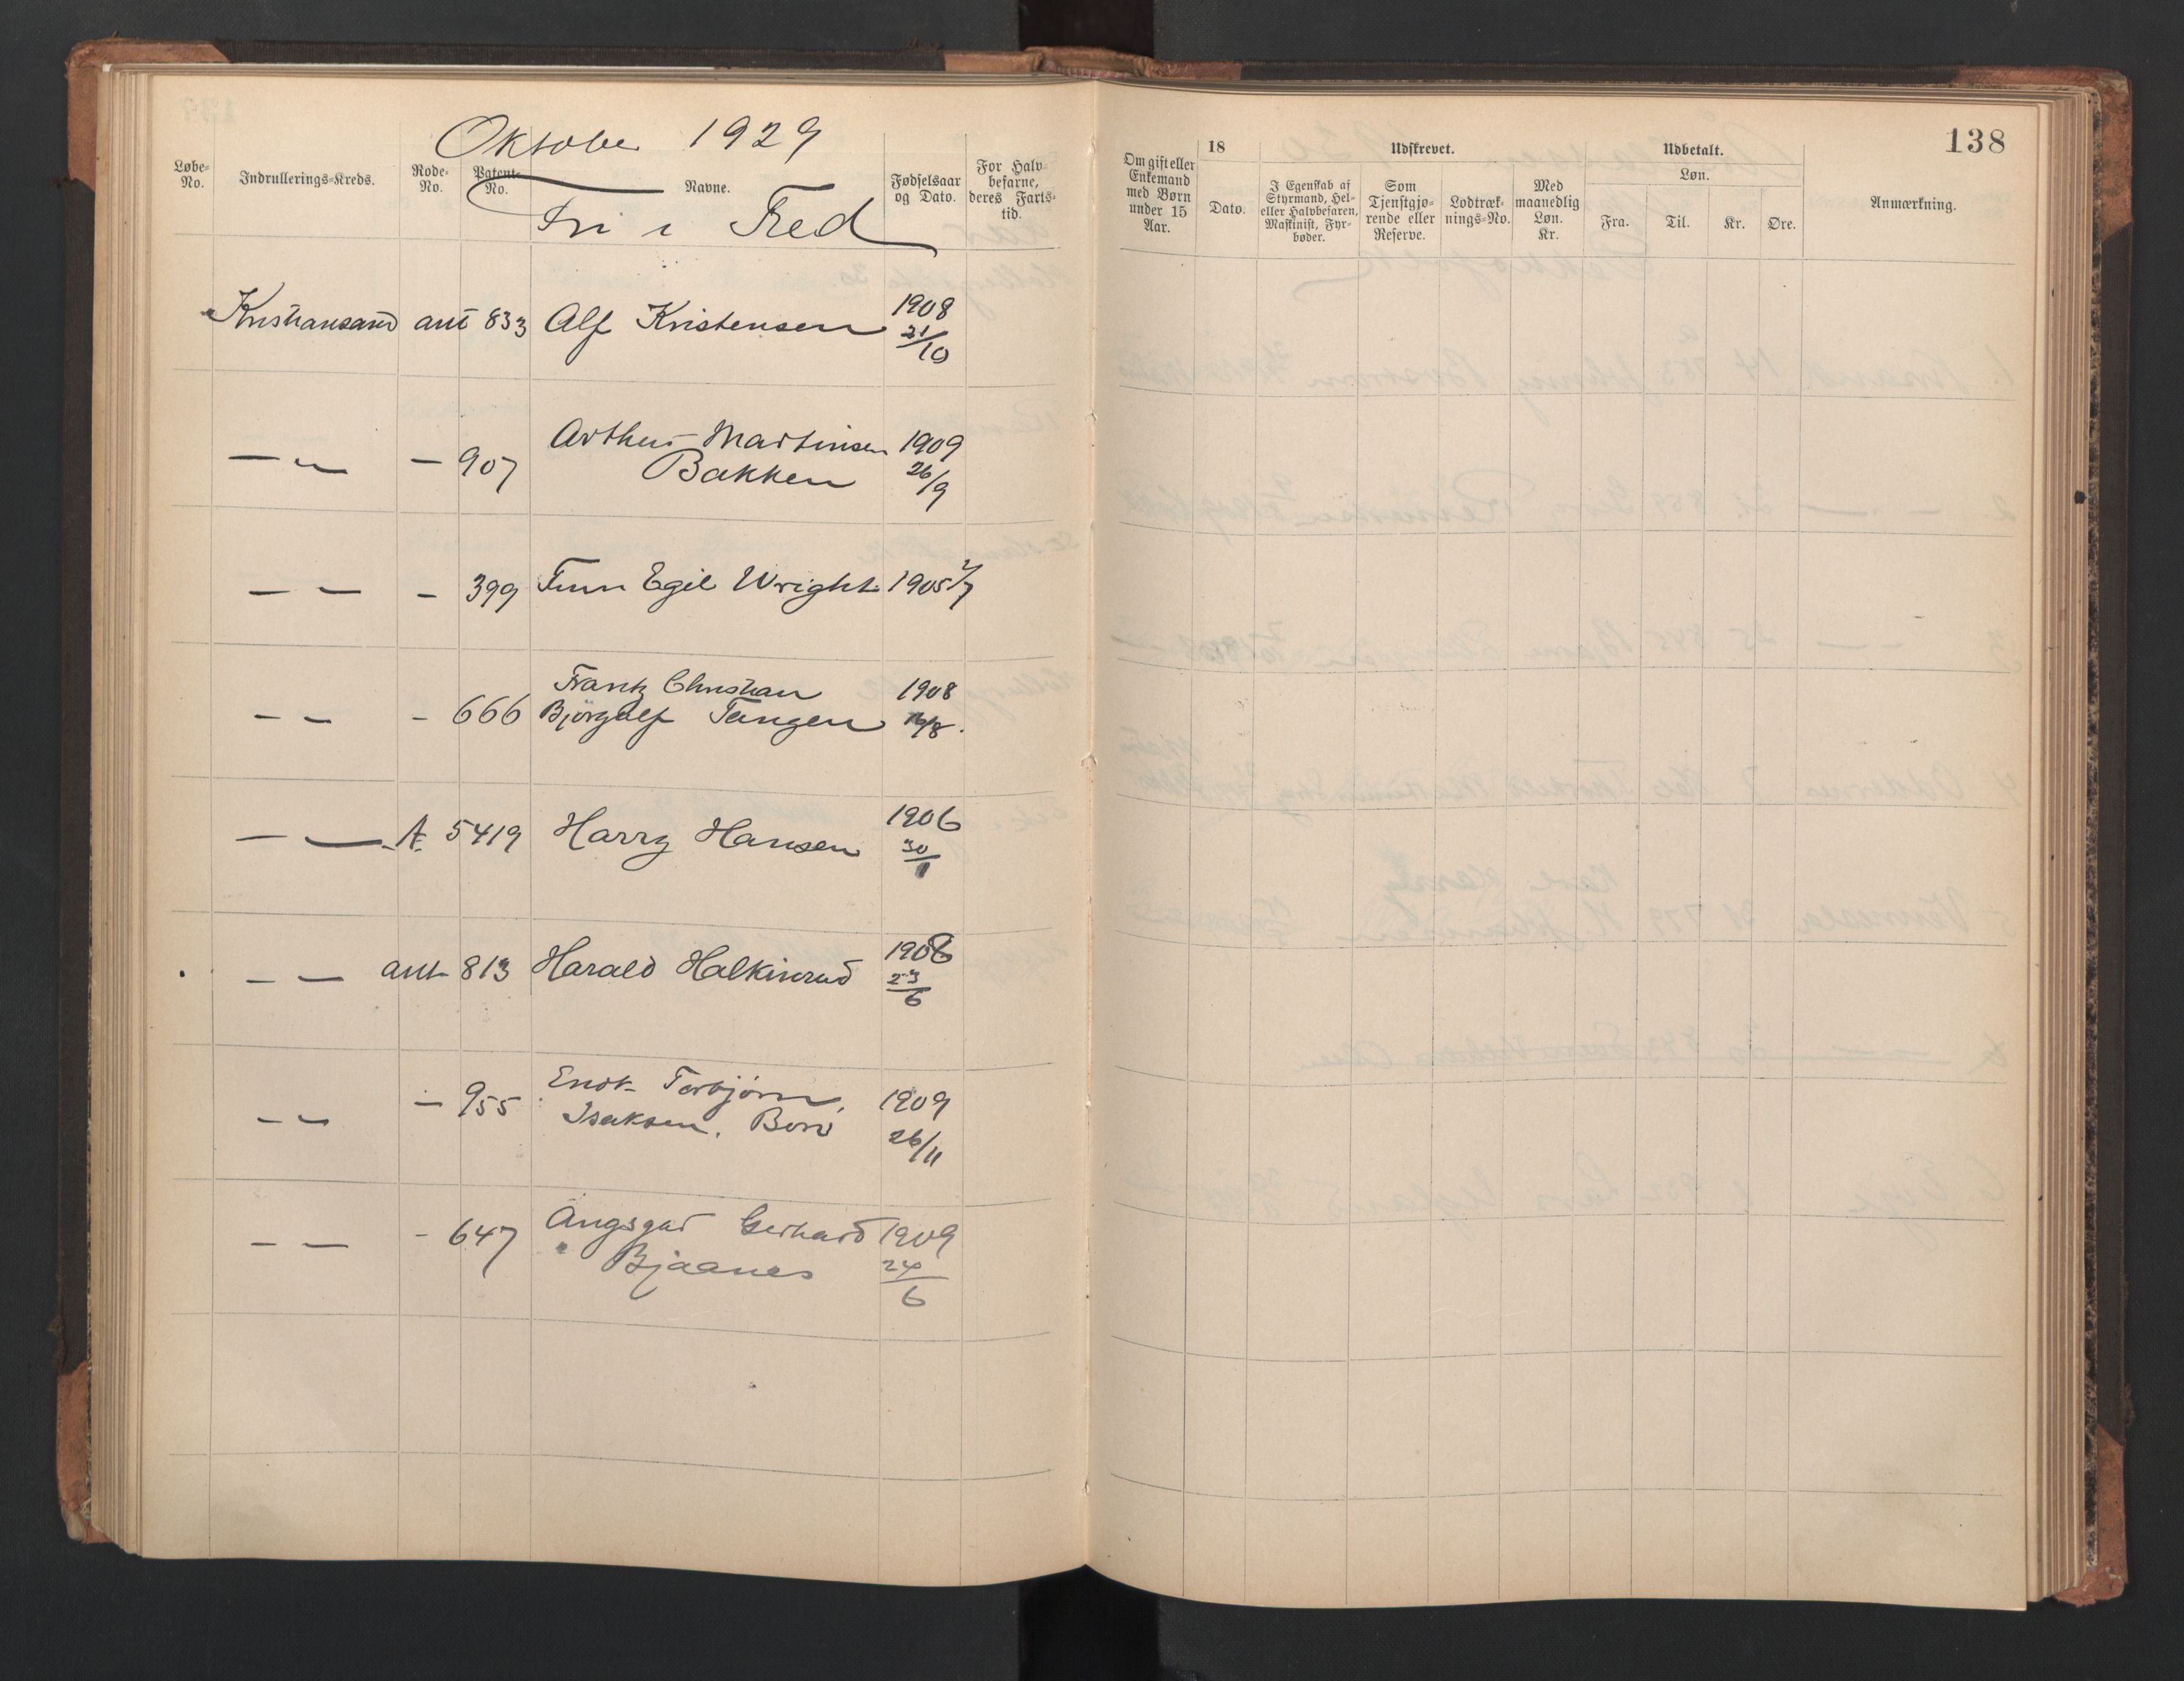 Oktober 1929
138
Løbe-No.
Indrullerings-Kreds.
Rode-No.
Patent-No.
Navne.
Fødselsaar og Dato.
For Halvbefarne, deres Farts-tid.
Om gift eller Enkemand med Børn under 15 Aar.
18
Dato.
Udskrevet.
I Egenskab af Styrmand, Hel- eller Halvbefaren, Maskinist, Fyrbøder.
Som Tjenstgjørende eller Reserve.
Lodtræknings-No.
Med maanedlig Løn. Kr.
Udbetalt.
Løn.
Fra.
Til.
Kr.
Øre.
Anmærkning.
Fri i Fred
Kristiansand ant 833 Alf Kristensen 1908 21/10
— — — 907 Arthur Martinsen Bakken 1909 26/9
— — — 399 Finn Egil Wright 1905 2/7
— — — 666 Frantz Christian Bjørgulf Tangen 1908
— — A 5419 Harry Hansen 1906
— — ant 813 Harald Halkinrud 1908 23/6
— — — 955 Enok Torbjørn Isaksen. Boro 1909 26/11
— — — 647 Angsgar Gerhard Bjaanes 1909 24/6